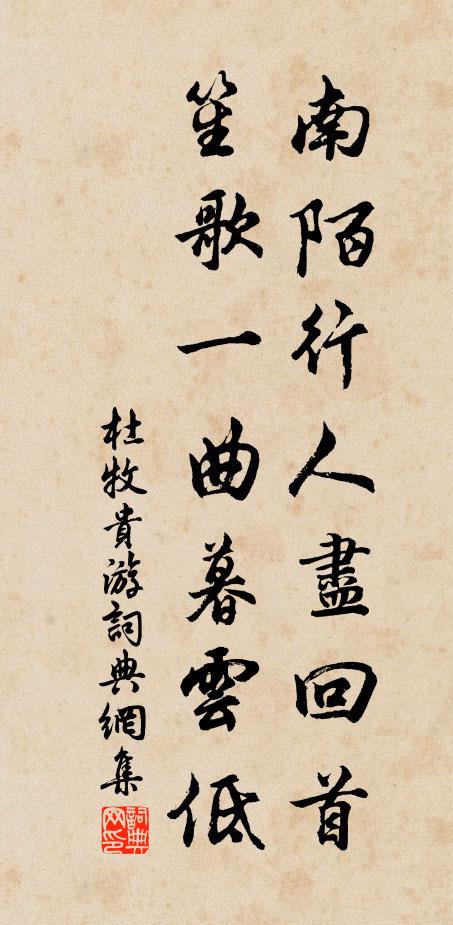 南陌行人盡回首
笙歌一曲暮雲低
杜牧貴游詞典網集
詞典网印